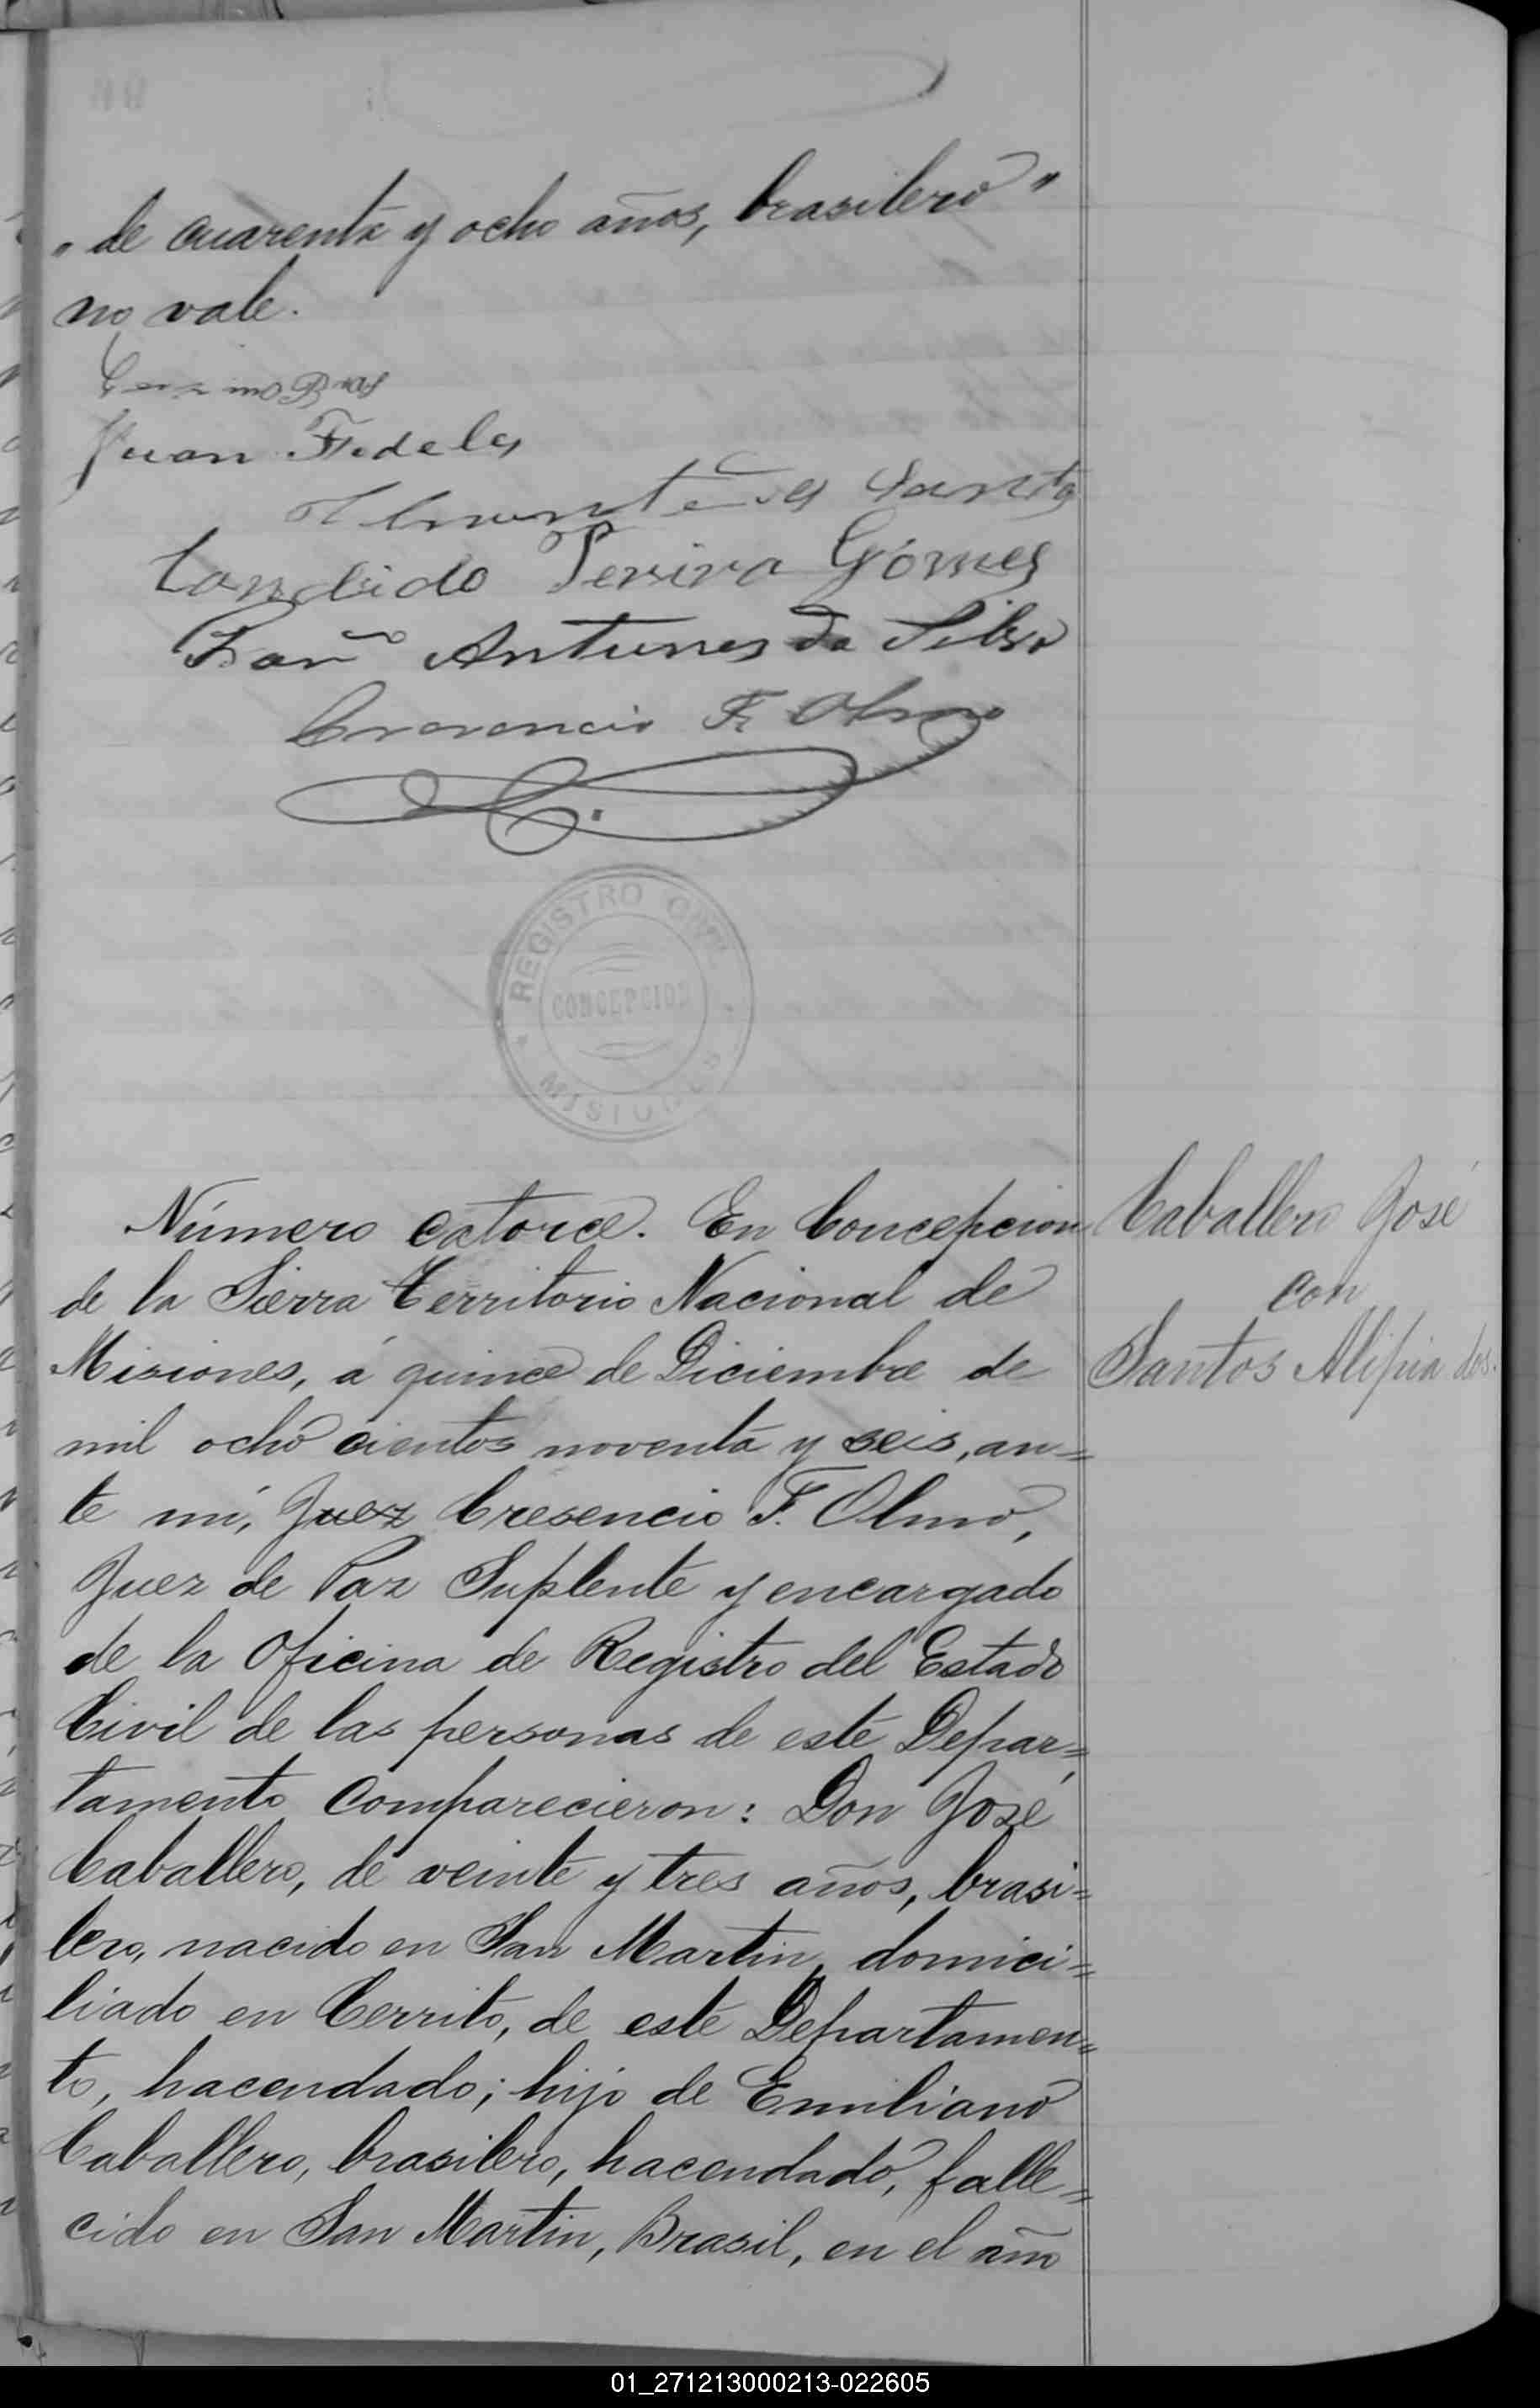 „ de cuarenta y ocho años, brasilero "
no vale.
Juan Fidelis
Santos
Candido Pereira Gómes
Franco Antunes da Silva
Cresencio F. Olmo
REGISTRO CIVIL
CONCEPCION
MISIONES
Número catorce. En Concepcion
de la Sierra Territorio Nacional de
Misiones, á quince de Diciembre de
mil ocho cientos noventa y seis, an=
te mí, Juez Cresencio F. Olmo,
Juez de Paz Suplente y encargado
de la Oficina de Registro del Estado
Civil de las personas de este Depar=
tamento comparecieron: Don José
Caballero, de veinte y tres años, brasi=
lero, nacido en San Martin, domici=
liado en Cerrito, de este Departamen=
to, hacendado; hijo de Emiliano
Caballero, brasilero, hacendado, falle=
cido en San Martin, Brasil, en el año
Caballero José
con
Santos Alipia dos.
01_271213000213-022605